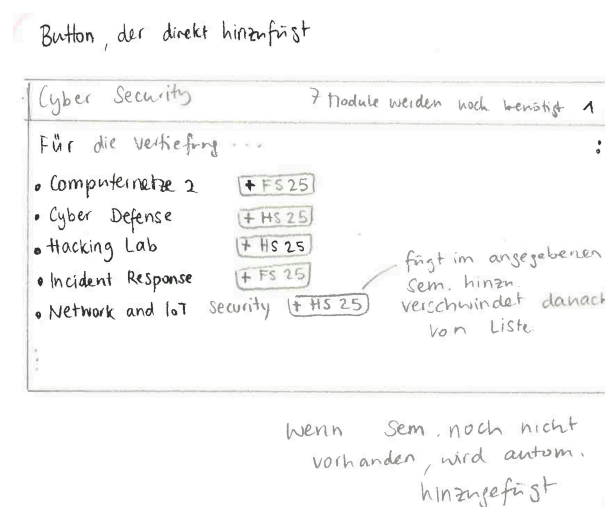 Button, der direkt hinzufügt
Cyber Security 7 Module werden noch benötigt 1
Für die Vertiefung ...
• Computernetze 2 + FS 25
• Cyber Defense + HS 25
• Hacking Lab + HS 25
• Incident Response + FS 25
• Network and IoT Security + HS 25
fügt im angegebenen
Sem. hinzu.
verschwindet danach
von Liste
Wenn Sem. noch nicht
vorhanden, wird autom.
hinzugefügt